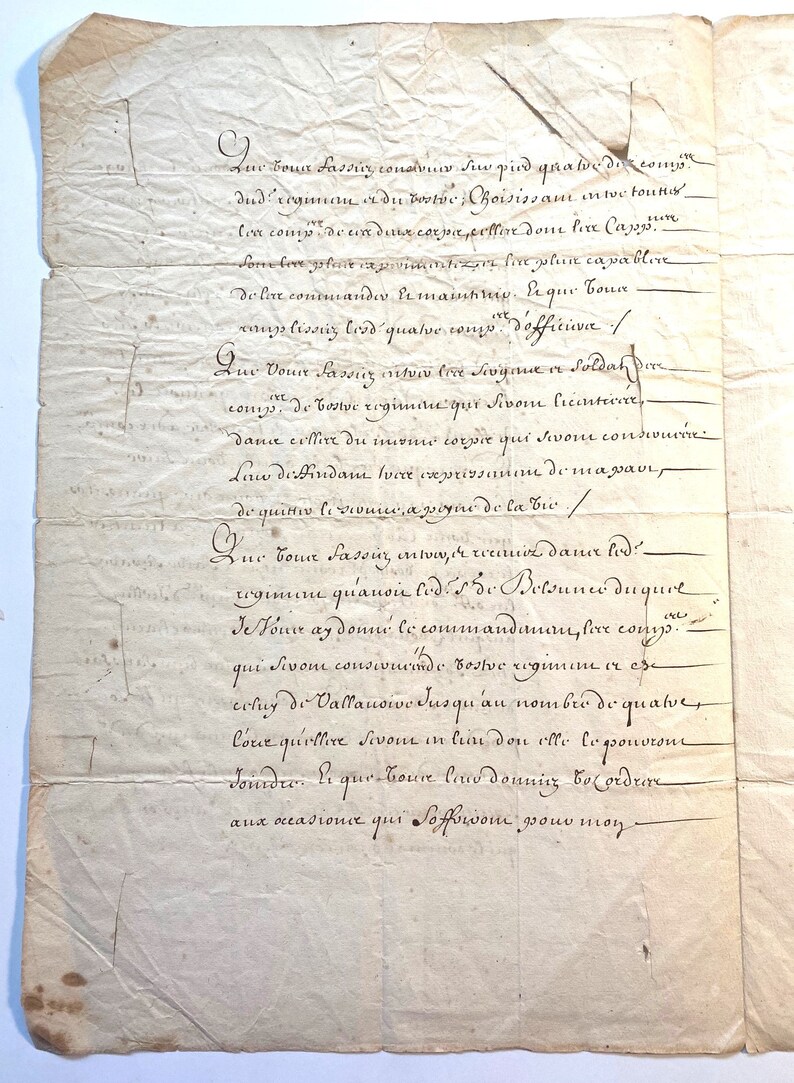 Que vous fassiez conserver sur pied quatre des comp.es
dud.t regiment et du vostre, Choisissant entre touttes
les comp.es de ces deux corps, celles dont les Capp.nes
sont les plus experimentez et les plus capables
de les commander et maintenir. Et que vous
remplissiez lesd. quatre comp.es d'officiers ./
Que vous fassiez entrer les sergens et soldats des
comp.es de vostre regiment qui seront licentiées,
dans celles du mesme corps qui seront conservées.
Leur deffendant tres expressement de ma part,
de quitter le service, a peyne de la vie ./
Que vous fassiez entrer, et recevoir dans led.t
regiment qu'avoit led.t S.r de Belsunce duquel
Je Vous ay donné le commandement, les comp.es
qui seront conservées de vostre regiment et de
celuy de Vallanoire Jusqu'au nombre de quatre,
lors qu'elles seront en lieu dou elle le pouront
Joindre. Et que vous leur donniez vos ordres
aux occasions qui s'offriront pour mon